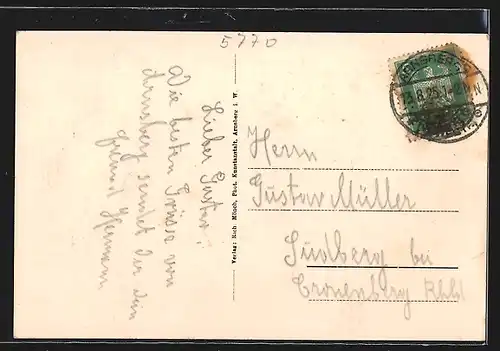 5770
Lieber Gustav.
Die besten Grüsse von
Arnsberg sendet Dir dein
Freund Hermann
Verlag: Roch Mönch, Phot. Kunstanstalt, Arnsberg i. W.
Herrn
Gustav Müller
Südberg bei
Cronenberg Rhld